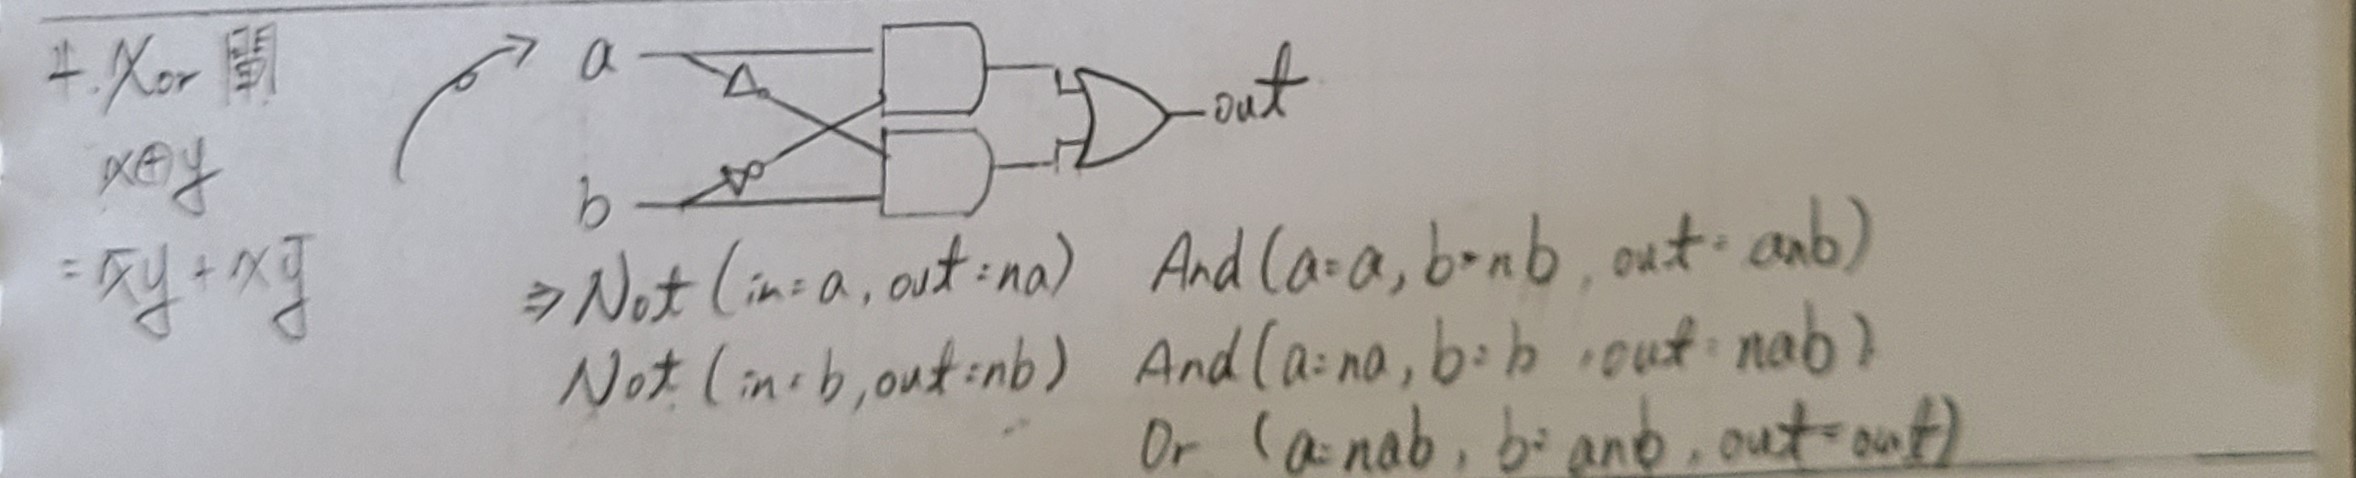 4. Xor 閘
x⊕y
= x̄y + xȳ
a
b
out
⇒ Not (in=a, out=na) And (a=a, b=nb, out=anb)
Not (in=b, out=nb) And (a=na, b=b, out=nab)
Or (a=nab, b=anb, out=out)